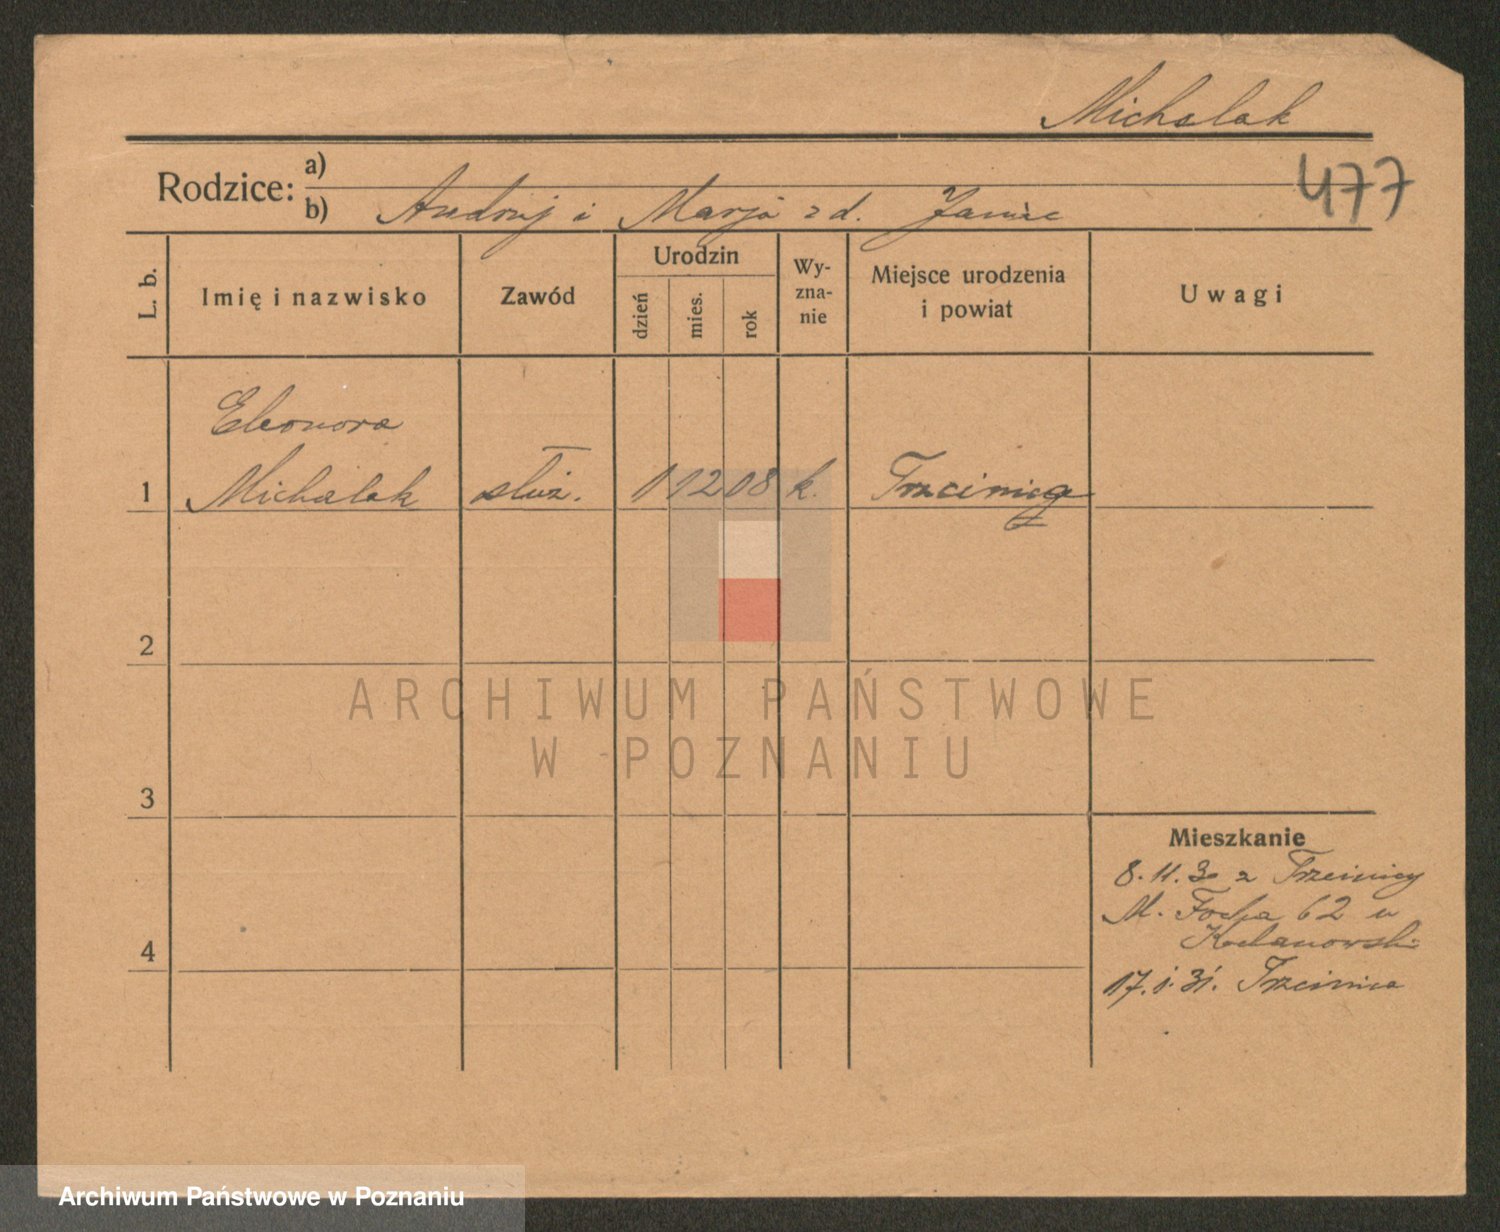 Michalak
477
Rodzice: a)
b) Andrzej i Marja z d. Janiec
L. b.
Imię i nazwisko
Zawód
Urodzin
dzień
mies.
rok
Wy-
zna-
nie
Miejsce urodzenia
i powiat
Uwagi
Eleonora
1 Michalak służ. 1 12 08 k. Trzcinica
2
ARCHIWUM PAŃSTWOWE
W POZNANIU
3
Mieszkanie
8.11.30 z Trzcinicy
M. Focha 62 u
17.1.31. Trzcinica
4
Archiwum Państwowe w Poznaniu